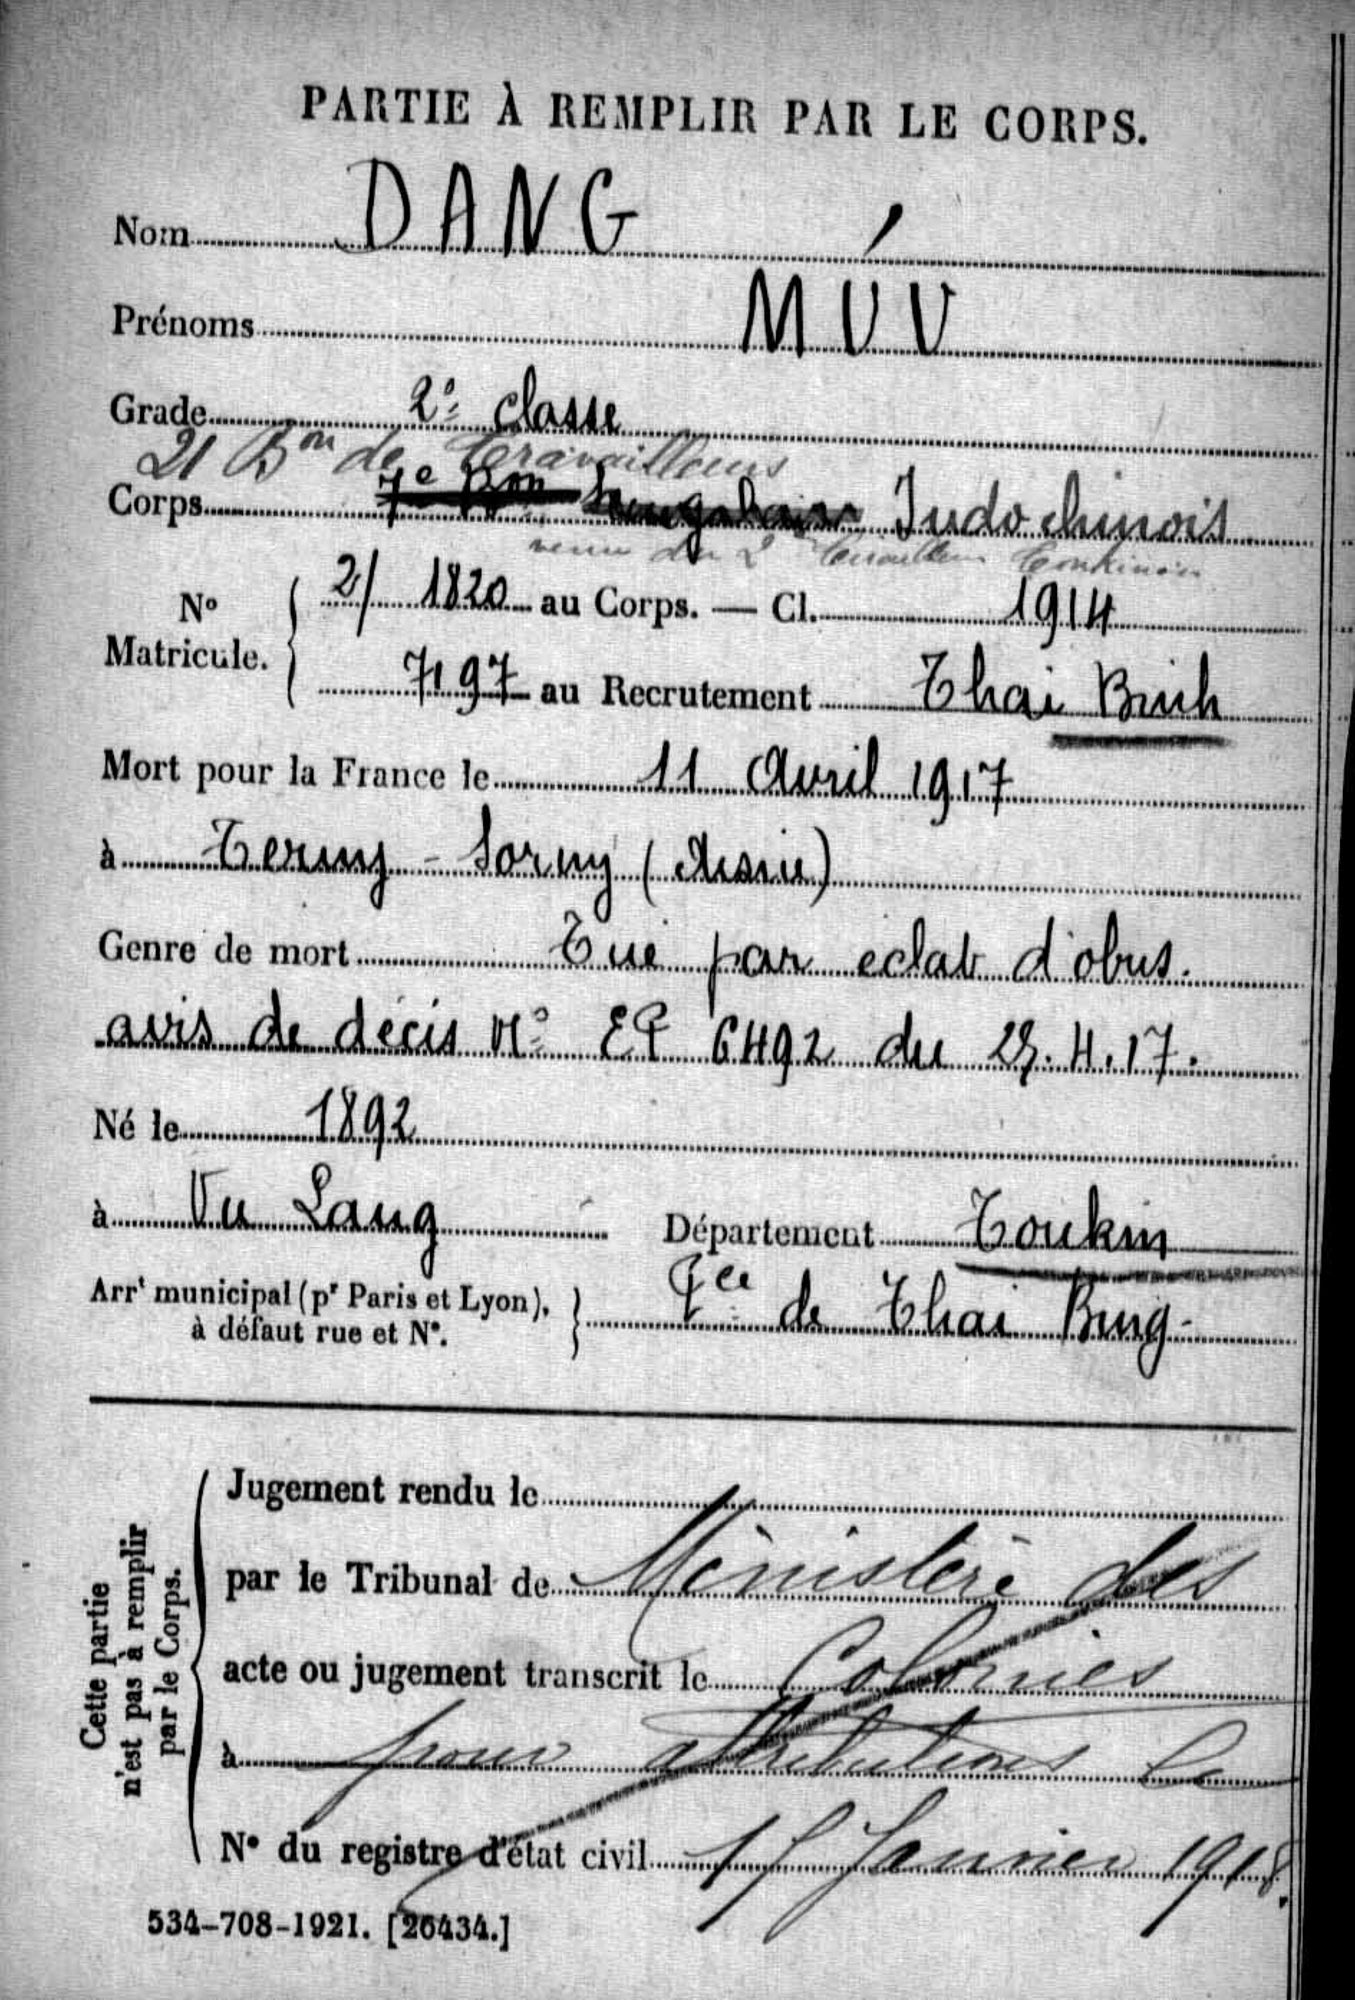 PARTIE À REMPLIR PAR LE CORPS.
Nom DANG
Prénoms MÚU
Grade 2e classe
21 Bon de Travailleurs
Corps 7e Bon Senegalais Indochinois
venu du 2 Tirailleurs Tonkinois
No Matricule. 2/ 1820 au Corps. — Cl. 1914
7197 au Recrutement Thai Binh
Mort pour la France le 11 Avril 1917
à Terny - Sorny (Aisne)
Genre de mort Tué par eclat d'obus.
avis de décis No EP 6492 du 4.17.
Né le 1892
à Vu Lang Département Tonkin
Arrt municipal (pr Paris et Lyon), à défaut rue et No. Pce de Thai Bing-
Cette partie n'est pas à remplir par le Corps.
Jugement rendu le
par le Tribunal de Ministère des
acte ou jugement transcrit le Colonies
à pour attributions le
No du registre d'état civil Janvier 1918.
534-708-1921. [26434.]